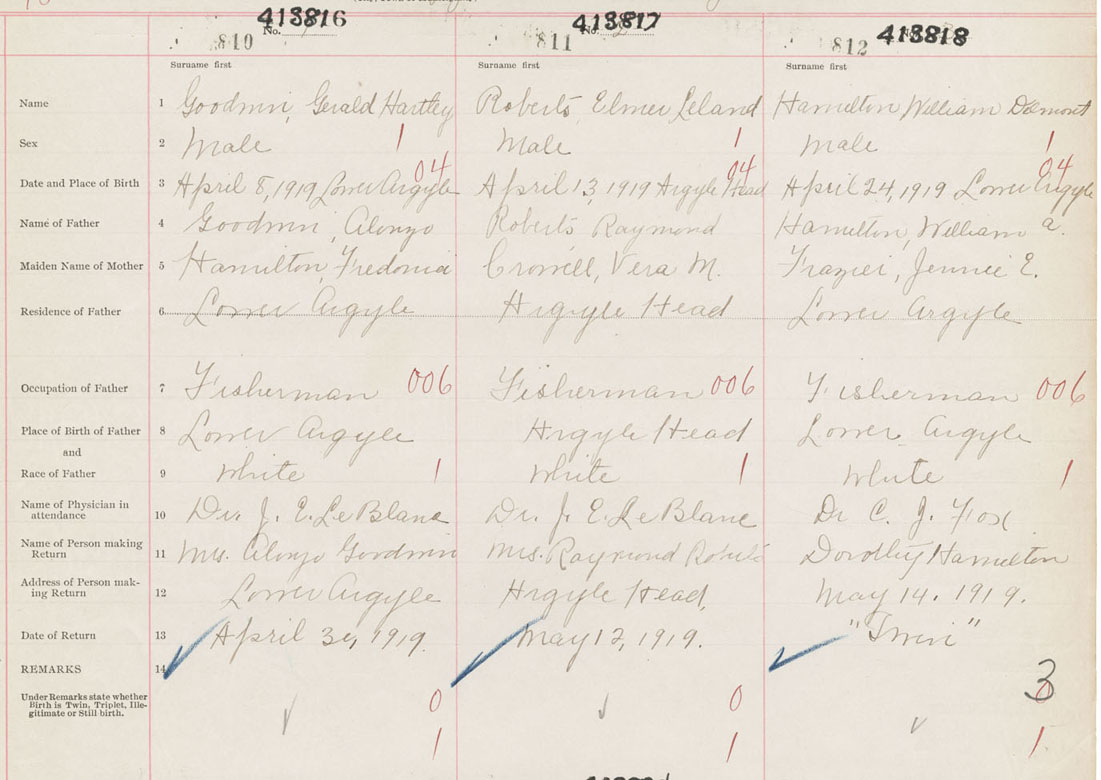 413816 413817 413818
No. No. No.
810 811 812
Surname first Surname first Surname first
Name 1 Goodwin, Gerald Hartley Roberts, Elmer Leland Hamilton William Delmont
Sex 2 Male 1 Male 1 Male 1
04 04 04
Date and Place of Birth 3 April 8, 1919 Lower Argyle April 13, 1919 Argyle Head April 24, 1919 Lower Argyle
Name of Father 4 Goodwin, Alonzo Roberts Raymond Hamilton, William A.
Maiden Name of Mother 5 Hamilton, Fredonia Crowell, Vera M. Frazier, Jennie E.
Residence of Father 6 Lower Argyle Argyle Head Lower Argyle
Occupation of Father 7 Fisherman 006 Fisherman 006 Fisherman 006
Place of Birth of Father 8 Lower Argyle Argyle Head Lower Argyle
and
Race of Father 9 White 1 White 1 White 1
Name of Physician in
attendance 10 Dr. J. E. LeBlanc Dr. J. E. LeBlanc Dr C. J. Fox
Name of Person making
Return 11 Mrs. Alonzo Goodwin Mrs. Raymond Roberts Dorothy Hamilton
Address of Person mak-
ing Return 12 Lower Argyle Argyle Head, May 14. 1919.
Date of Return 13 April 30, 1919. May 12, 1919. "Twin"
REMARKS 14
Under Remarks state whether
Birth is Twin, Triplet, Ille-
gitimate or Still birth.
0 0 3
1 1 1